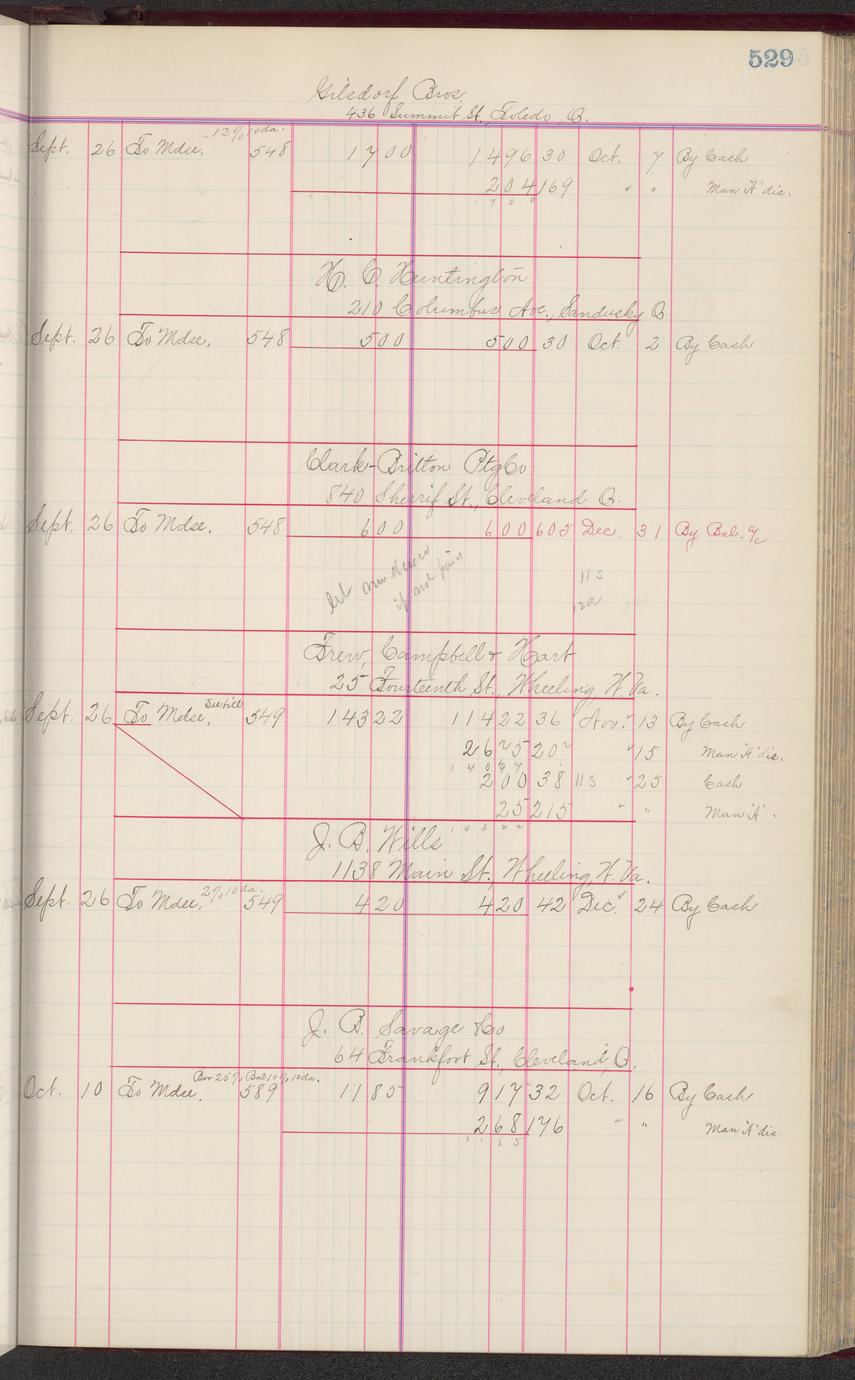 529
Gilsdorf Bros.
436 Summit St., Toledo, O.
12% 10 da.
Sept. 26 To Mdse. 548 1700 1496 30 Oct. 7 By Cash
204 169 " " Man "A" dis.
H. C. Huntington
210 Columbus Ave., Sandusky O.
Sept. 26 To Mdse. 548 500 500 30 Oct. 2 By Cash
Clark-Britton Ptg Co.
840 Sherrif St., Cleveland O.
Sept. 26 To Mdse. 548 600 600 605 Dec. 31 By Bal. a/c
if not
11 S
Frew, Campbell & Hart
25 Fourteenth St., Wheeling, W. Va.
Sept. 26 To Mdse. 549 14322 11422 36 Nov. 13 By Cash
2625 20 " 15 Man "A" dis.
14067
200 38 11 S " 25 Cash
25 215 " " Man "A" "
14322
J. B. Wills
1138 Main St., Wheeling, W. Va.
2% 10 da.
Sept. 26 To Mdse. 549 420 420 42 Dec. 24 By Cash
J. B. Savage & Co
64 Frankfort St., Cleveland, O.
Bor 25% Bal 10% 10 da.
Oct. 10 To Mdse. 589 1185 917 32 Oct. 16 By Cash
268 176 " " Man "A" dis.
1185